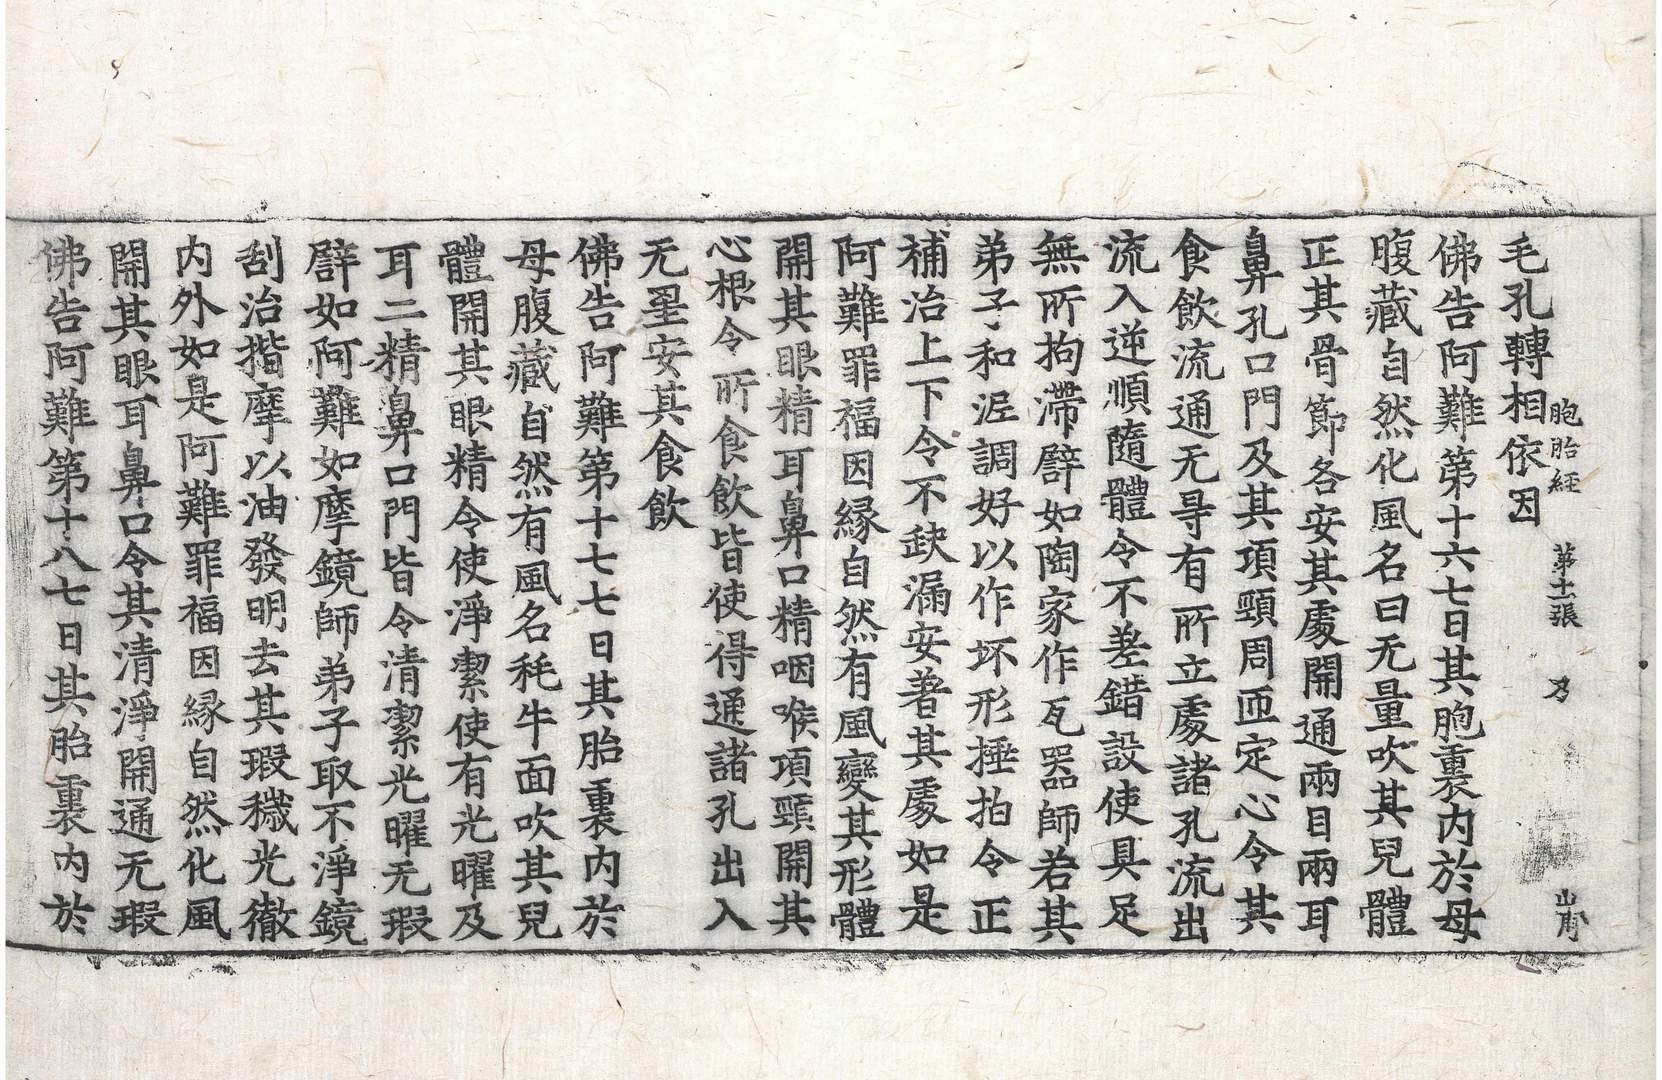 胞胎經　第十一張　乃
毛孔轉相依因
佛告阿難第十六七日其胞裏内於母
腹藏自然化風名曰无量吹其兒體
正其骨節各安其處開通兩目兩耳
鼻孔口門及其項頸周匝定心令其
食飲流通无㝵有所立處諸孔流出
流入逆順隨體令不差錯設使具足
無所拘滯譬如陶家作瓦器師若其
弟子和泥調好以作坏形捶拍令正
補治上下令不缺漏安著其處如是
阿難罪福因緣自然有風變其形體
開其眼精耳鼻口精咽喉項頸開其
心根令所食飲皆使得通諸孔出入
无罣安其食飲
佛告阿難第十七七日其胎裏内於
母腹藏自然有風名耗牛面吹其兒
體開其眼精令使淨潔使有光曜及
耳二精鼻口門皆令清潔光曜无瑕
譬如阿難如摩鏡師弟子取不淨鏡
刮治揩摩以油發明去其瑕穢光徹
内外如是阿難罪福因緣自然化風
開其眼耳鼻口令其清淨開通无瑕
佛告阿難第十八七日其胎裏内於